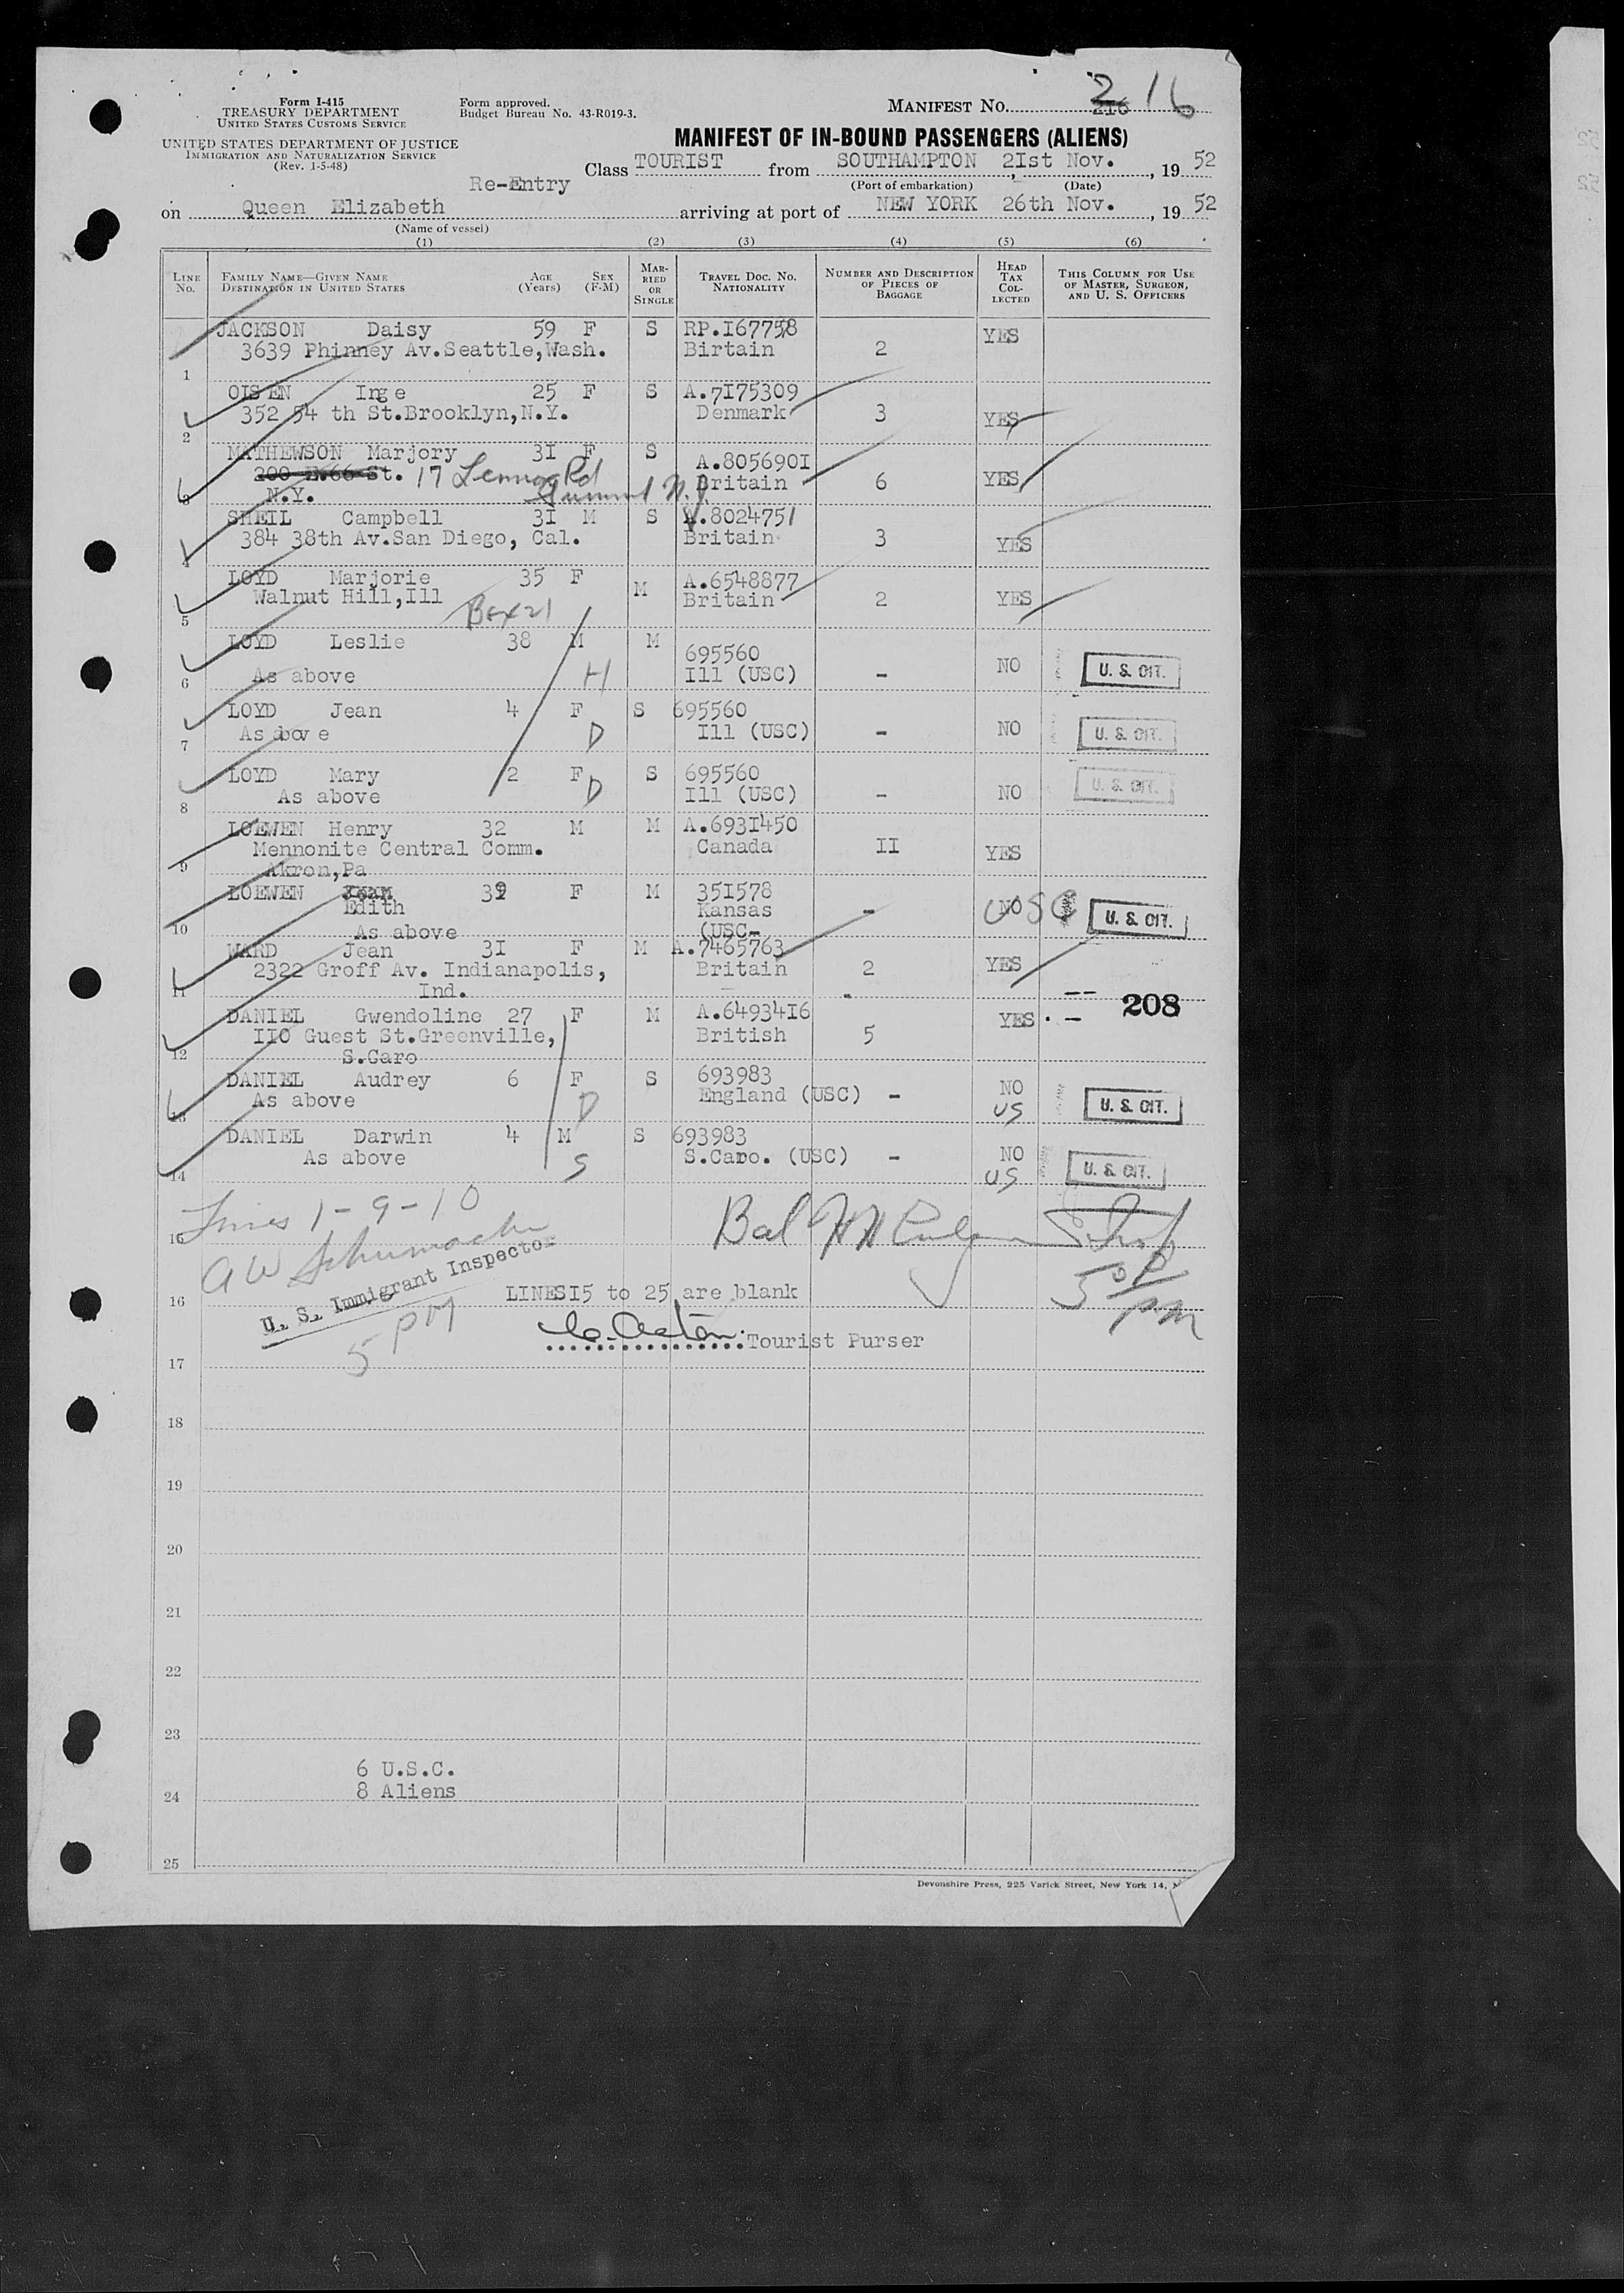 Form I-415
TREASURY DEPARTMENT
UNITED STATES CUSTOMS SERVICE
UNITED STATES DEPARTMENT OF JUSTICE
IMMIGRATION AND NATURALIZATION SERVICE
(Rev. 1-5-48)
Form approved.
Budget Bureau No. 43-R019-3.
MANIFEST NO. 216 216
MANIFEST OF IN-BOUND PASSENGERS (ALIENS)
Re-Entry
Class TOURIST from SOUTHAMPTON 2Ist Nov. , 19 52
(Port of embarkation) (Date)
on Queen Elizabeth arriving at port of NEW YORK 26th Nov. , 19 52
(Name of vessel)
(1) (2) (3) (4) (5) (6)
LINE No. FAMILY NAME—GIVEN NAME DESTINATION IN UNITED STATES AGE (Years) SEX (F-M) MARRIED OR SINGLE TRAVEL DOC. NO. NATIONALITY NUMBER AND DESCRIPTION OF PIECES OF BAGGAGE HEAD TAX COLLECTED THIS COLUMN FOR USE OF MASTER, SURGEON, AND U. S. OFFICERS
JACKSON Daisy 59 F S RP.I67758 YES
3639 Phinney Av.Seattle,Wash. Birtain 2
1
OISEN Inge 25 F S A.7I75309
352 54 th St.Brooklyn,N.Y. Denmark 3 YES
2
MATHEWSON Marjory 3I F S A.805690I
200 E.66 St. 17 Lennox Rd Britain 6 YES
3 N.Y. Summit N.J.
SHEIL Campbell 3I M S A.8024751
384 38th Av.San Diego, Cal. Britain 3 YES
4
LOYD Marjorie 35 F M A.6548877
Walnut Hill,Ill Britain 2 YES
5 Box 21
LOYD Leslie 38 M M 695560 NO U. S. CIT.
6 As above H Ill (USC) -
LOYD Jean 4 F S 695560
As above D Ill (USC) - NO U. S. CIT.
7
LOYD Mary 2 F S 695560 U. S. CIT.
As above D Ill (USC) - NO
8
LOEWEN Henry 32 M M A.693I450
Mennonite Central Comm. Canada II YES
9 Akron,Pa
LOEWEN Edith 32 F M 35I578
Kansas - NO USC U. S. CIT.
10 As above (USC-
WARD Jean 3I F M A.7465763
2322 Groff Av. Indianapolis, Britain 2 YES
11 Ind.
208
DANIEL Gwendoline 27 F M A.64934I6
II0 Guest St.Greenville, British 5 YES
12 S.Caro
DANIEL Audrey 6 F S 693983 NO
As above D England (USC) - US U. S. CIT.
13
DANIEL Darwin 4 M S 693983 NO
As above S S.Caro. (USC) - US U. S. CIT.
14
Lines 1-9-10
15
AW Schumacher
U. S. Immigrant Inspector
5 PM
Bal
5 00 PM
16 LINESI5 to 25 are blank
Tourist Purser
17
18
19
20
21
22
23
6 U.S.C.
8 Aliens
24
25
Devonshire Press, 225 Varick Street, New York 14,